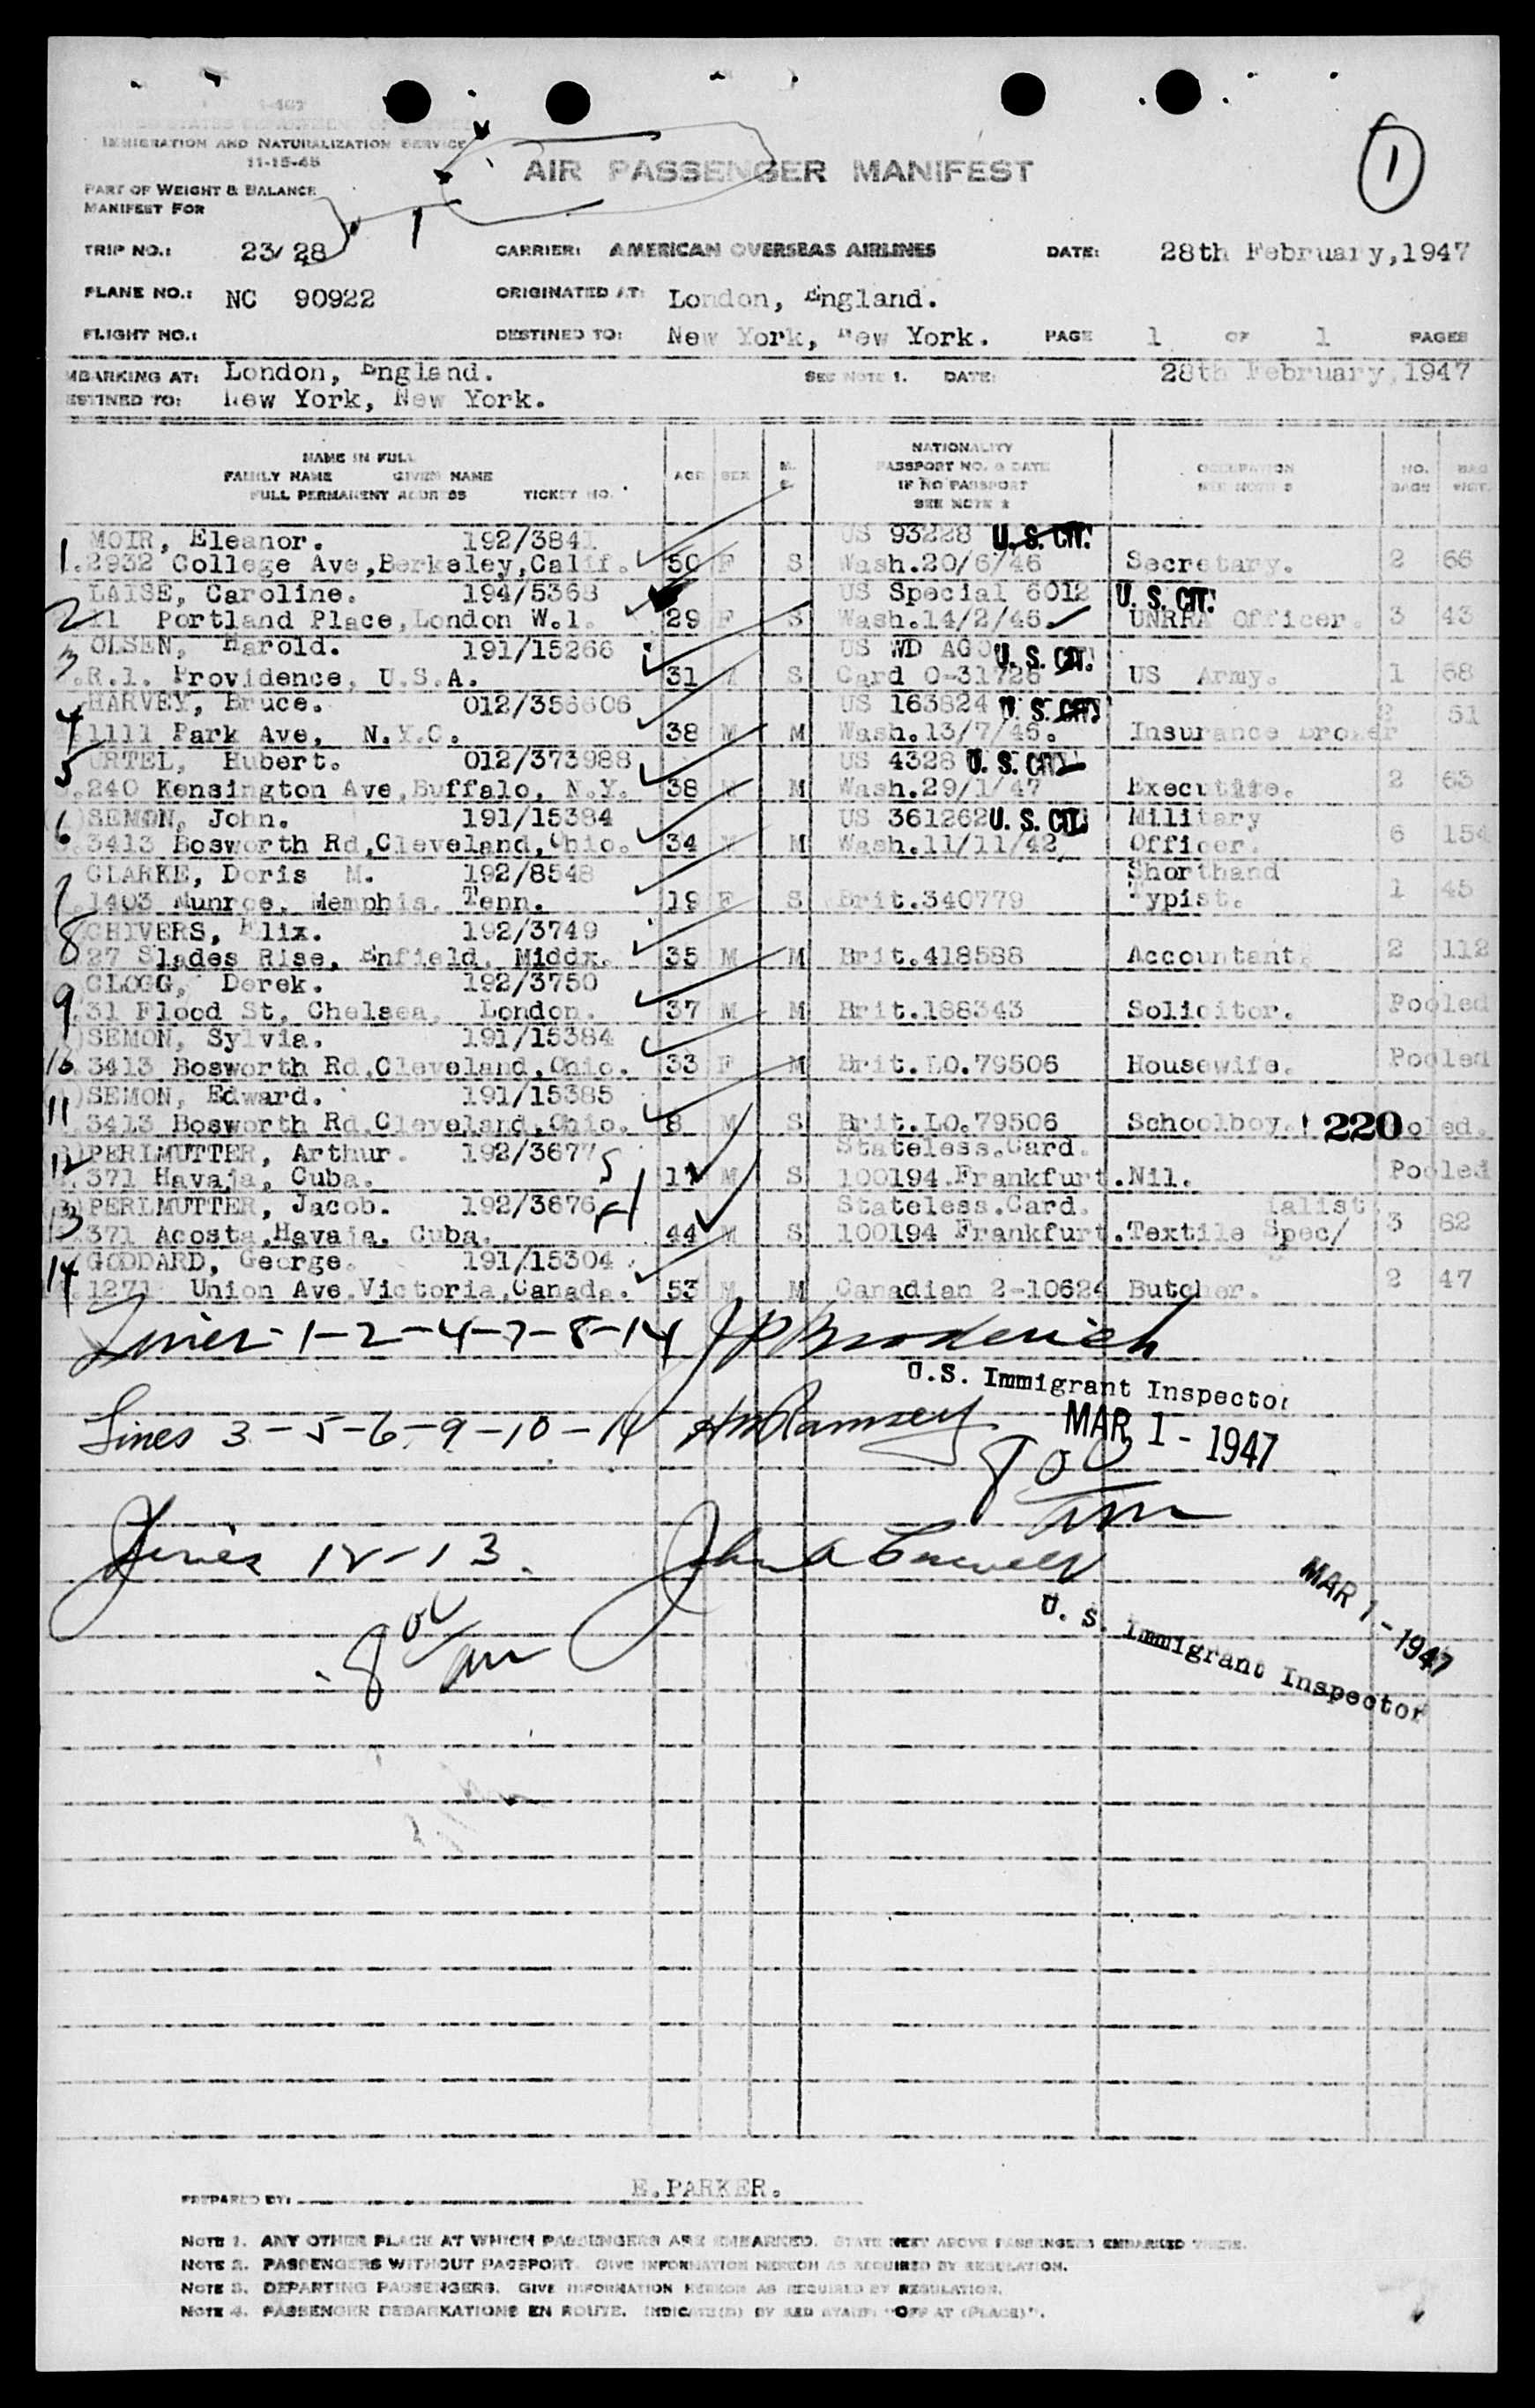 I-467
UNITED STATES DEPARTMENT OF JUSTICE
IMMIGRATION AND NATURALIZATION SERVICE
11-15-45
AIR PASSENGER MANIFEST
1
PART OF WEIGHT & BALANCE
MANIFEST FOR
1
TRIP NO.: 23/28 CARRIER: AMERICAN OVERSEAS AIRLINES DATE: 28th February,1947
PLANE NO.: NC 90922 ORIGINATED AT: London, England.
FLIGHT NO.: DESTINED TO: New York, New York. PAGE 1 OF 1 PAGES
MBARKING AT: London, England. SEE NOTE 1. DATE: 28th February,1947
ESTINED TO: New York, New York.
NAME IN FULL
FAMILY NAME GIVEN NAME
FULL PERMANENT ADDRESS TICKET NO.
AGE SEX M. S
NATIONALITY
PASSPORT NO. & DATE
IF NO PASSPORT
SEE NOTE 2
OCCUPATION
SEE NOTE 3
NO. BAGS
BAG WGT.
MOIR, Eleanor. 192/3841 US 93228 U.S. CIT.
1. 2932 College Ave,Berkeley,Calif. 50 F S Wash.20/6/46 Secretary. 2 66
LAISE, Caroline. 194/5368 US Special 6012 U.S. CIT.
2 11 Portland Place,London W.1. 29 F S Wash.14/2/46. UNRRA Officer. 3 43
OLSEN, Harold. 191/15266 US WD AGO U.S. CIT.
3. R.1. Providence, U.S.A. 31 M S Card O-31726 US Army. 1 68
HARVEY, Bruce. 012/356606 US 163824 U.S. CIT. 2 51
4 1111 Park Ave, N.Y.C. 38 M M Wash.13/7/46. Insurance Broker
URTEL, Hubert. 012/373988 US 4328 U.S. CIT.
5. 240 Kensington Ave,Buffalo, N.Y. 38 M M Wash.29/1/47 Executive. 2 63
SEMON, John. 191/15384 US 361262 U.S. CIT. Military
6. 3413 Bosworth Rd,Cleveland,Ohio. 34 M M Wash.11/11/42 Officer. 6 154
CLARKE, Doris M. 192/8548 Shorthand
7. 1403 Munroe, Memphis, Tenn. 19 F S Brit.340779 Typist. 1 45
CHIVERS, Elix. 192/3749
8 27 Slades Rise, Enfield, Middx. 35 M M Brit.418588 Accountant 2 112
CLOGG, Derek. 192/3750
9. 31 Flood St, Chelsea, London. 37 M M Brit.188343 Solicitor. Pooled
SEMON, Sylvia. 191/15384
10. 3413 Bosworth Rd,Cleveland,Ohio. 33 F M Brit.LO.79506 Housewife. Pooled
SEMON, Edward. 191/15385
11. 3413 Bosworth Rd,Cleveland,Ohio. 8 M S Brit.LO.79506 Schoolboy. 220 oled.
PERLMUTTER, Arthur. 192/3677 Stateless.Card.
12. 371 Havaja, Cuba. 17 M S 100194.Frankfurt. Nil. Pooled
PERLMUTTER, Jacob. 192/3676 Stateless.Card. ialist
13 371 Acosta,Havaja, Cuba. 44 M S 100194 Frankfurt. Textile Spec/ 3 62
GODDARD, George. 191/15304
14. 1271 Union Ave.Victoria,Canada. 53 M M Canadian 2-10624 Butcher. 2 47
Lines-1-2-4-7-8-14 JP Broderick
U.S. Immigrant Inspector
Lines 3-5-6-9-10-11 HW Ramsey MAR 1 - 1947
8 00 am
Lines 12-13. John A
MAR 1 - 1947
8 00 am
U. S. Immigrant Inspector
PREPARED BY: E.PARKER.
NOTE 1. ANY OTHER PLACE AT WHICH PASSENGERS ARE EMBARKED. STATE NEXT ABOVE PASSENGERS EMBARKED THERE.
NOTE 2. PASSENGERS WITHOUT PASSPORT. GIVE INFORMATION HEREON AS REQUIRED BY REGULATION.
NOTE 3. DEPARTING PASSENGERS. GIVE INFORMATION HEREON AS REQUIRED BY REGULATION.
NOTE 4. PASSENGER DEBARKATIONS EN ROUTE. INDICATE(D) BY RED STAMP "OFF AT (PLACE)".